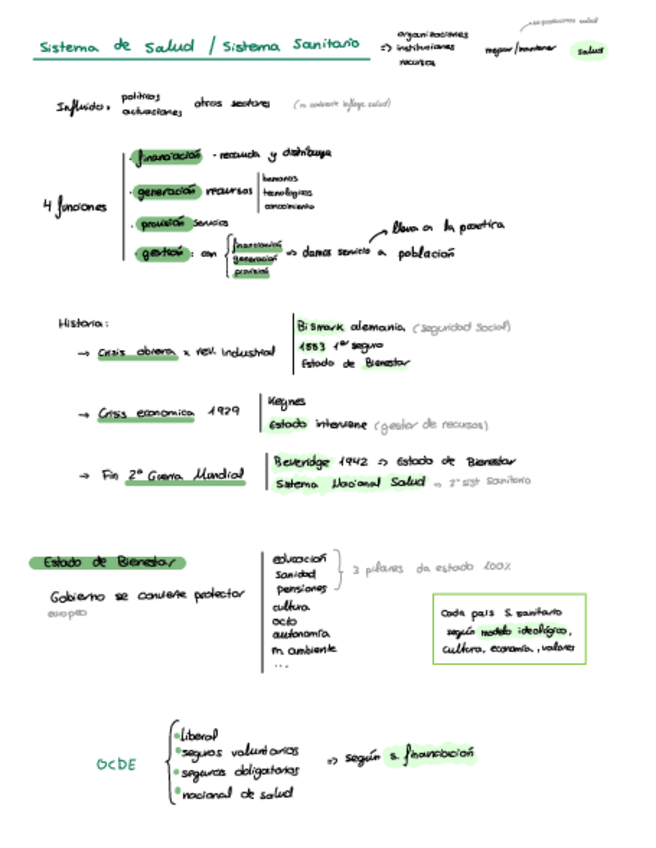 organizaciones
Sistema de Salud / Sistema Sanitario => instituciones mejorar/mantener salud
recursos
Influido: políticos otros sectores (m. ambiente influye salud)
actuaciones
4 funciones
· financiación · recauda y distribuye
· generación recursos humanos
tecnologicos
conocimiento
· provisión servicios
· gestión: con financiación => damos servicio a población
generación
provisión
lleva a la práctica
Historia:
→ Crisis obrera x rev. Industrial
Bismark alemania (seguridad social)
1883 1er seguro
Estado de Bienestar
→ Crisis economica 1929
Keynes
Estado interviene (gestor de recursos)
→ Fin 2ª Guerra Mundial
Beveridge 1942 => Estado de Bienestar
Sistema Nacional Salud => 2º sist sanitario
Estado de Bienestar
Gobierno se convierte protector
europeo
educación
sanidad
pensiones
3 pilares da estado 100%
cultura
ocio
autonomía
m. ambiente
...
Cada país S. sanitario
según modelo ideológico,
cultura, economía, valores
OCDE
• liberal
• seguros voluntarios
• seguros obligatorios
• nacional de salud
=> según s. financiación